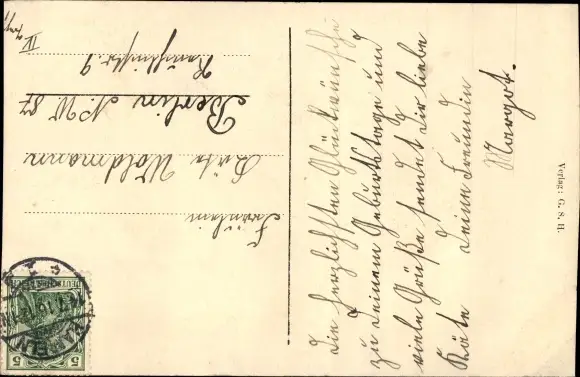 Die herzlichsten Glückwünsche
zu Deinem Geburtstage und
viele Grüße sendet Dir liebe
Käte Deine Freundin
Margot.
Fräulein
Käte Woldmann
Berlin N.W. 87
9
IV
Verlag: G. S. H.
DEUTSCHES REICH
5 5